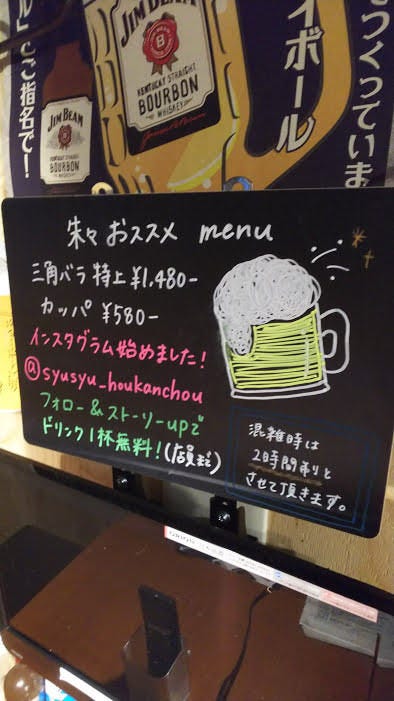 JIM BEAM
KENTUCKY STRAIGHT
BOURBON
WHISKEY
JIM BEAM
BOURBON
イボール
つくっていま
ご指名で!
朱々 おススメ menu
三角バラ 特上 ¥1,480-
カッパ ¥580-
インスタグラム始めました!
@syusyu_houkanchou
フォロー&ストーリーupで
ドリンク1杯無料!(店員まで)
混雑時は
2時間制りと
させて頂きます。
ORION